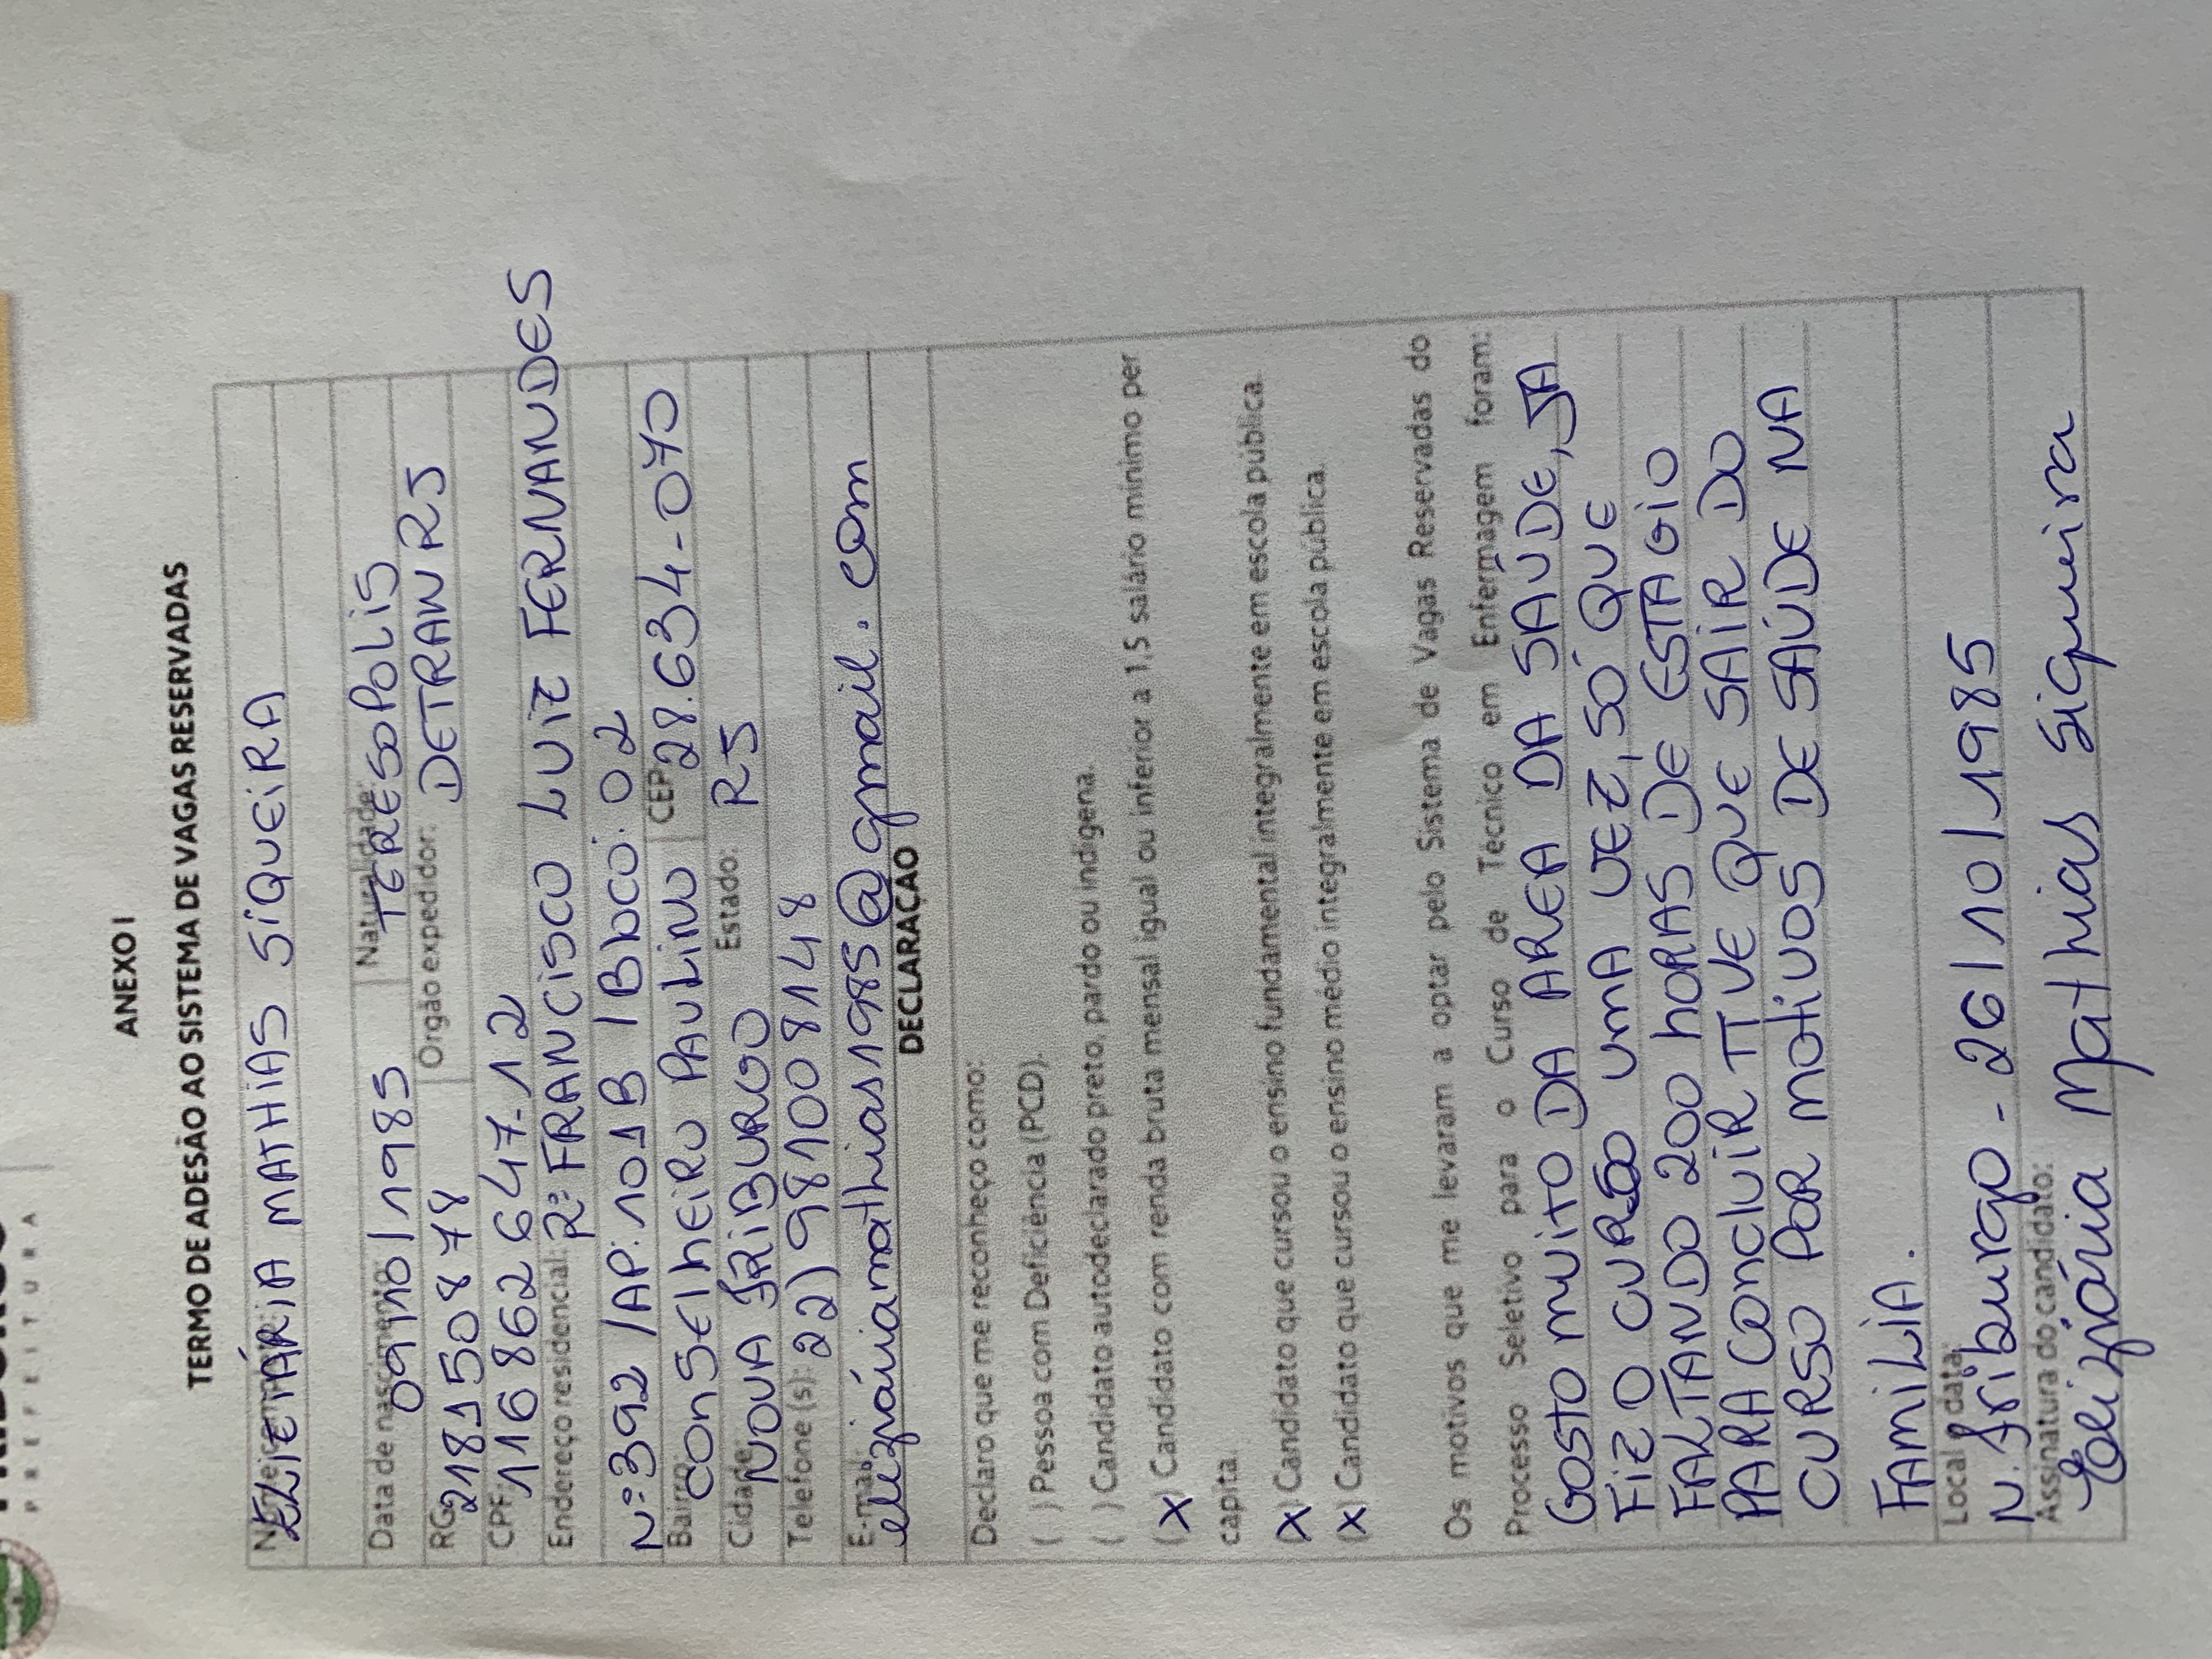 PREFEITURA
ANEXO I
TERMO DE ADESÃO AO SISTEMA DE VAGAS RESERVADAS
Nome completo:
ELIZIÁRIA MATHIAS SIQUEIRA
Data de nascimento: 09/10/1985 Naturalidade: TERESOPOLIS
RG: 218150878 Órgão expedidor: DETRAN RJ
CPF: 116862647-12
Endereço residencial: Rª FRANCISCO LUIZ FERNANDES
Nº 392 / AP: 101B / Bloco: 02
Bairro: CONSElhEiRO PAULINO CEP: 28.634-070
Cidade: NOVA FRIBURGO Estado: RJ
Telefone (s): 22) 981008148
E-mail: eliziáriamathias1985@gmail.com
DECLARAÇÃO
Declaro que me reconheço como:
( ) Pessoa com Deficiência (PCD).
( ) Candidato autodeclarado preto, pardo ou indígena.
(X) Candidato com renda bruta mensal igual ou inferior a 1,5 salário mínimo per
capita.
(X) Candidato que cursou o ensino fundamental integralmente em escola pública.
(X) Candidato que cursou o ensino médio integralmente em escola pública.
Os motivos que me levaram a optar pelo Sistema de Vagas Reservadas do
Processo Seletivo para o Curso de Técnico em Enfermagem foram:
GOSTO MUITO DA AREA DA SAÚDE, JA
FIZ O CURSO UMA VEZ, SÓ QUE
FALTANDO 200 HORAS DE ESTAGIO
PARA CONCLUIR TIVE QUE SAIR DO
CURSO POR MOTIVOS DE SAÚDE NA
FAMILIA.
Local e data:
N. Friburgo - 26/10/1985
Assinatura do candidato:
Eliziária Mathias Siqueira